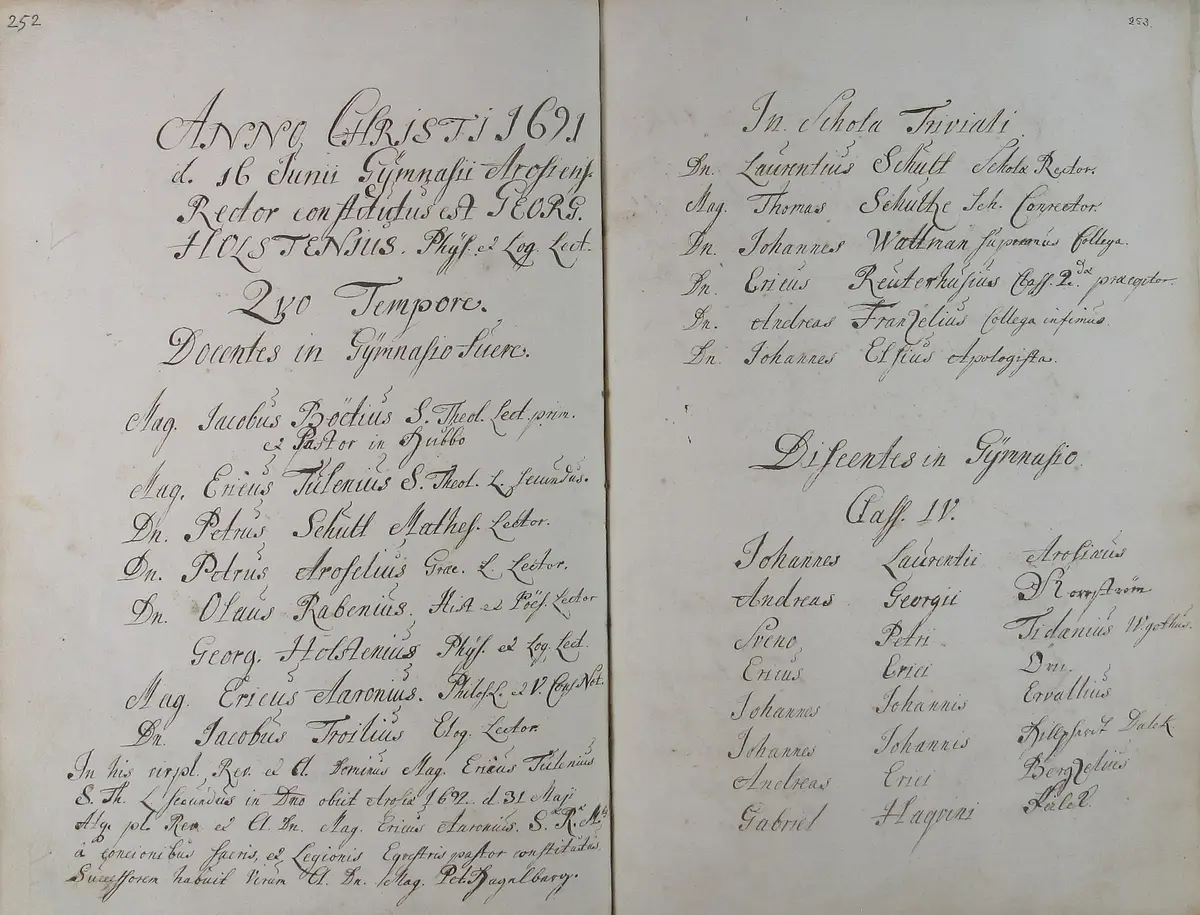 252
ANNO CHRISTI 1691
d. 16 Junii Gÿmnasii Arosiens.
Rector constitutus est GEORG.
HOLSTENIUS. Phÿs. et Log. Lect.
Qvo Tempore.
Docentes in Gÿmnasio fuere.
Mag. Jacobus Boëtius S. Theol. Lect. prim.
et Pastor in Hubbo
Mag. Ericus Tulenius S. Theol. L. secundus.
Dn. Petrus Schult Mathes. Lector.
Dn. Petrus Aroselius Græc. L. Lector.
Dn. Olaus Rabenius. Hist et Poës. Lector
Georg. Holstenius Phÿs. et Log. Lect.
Mag. Ericus Aaronius. Philos. L. et V. Cons. Not.
Dn. Jacobus Troilius Eloq. Lector.
In his Rev. et Cl. Dominus Mag. Ericus Tulenius
S. Th. L. secundus in Dno obiit Arosiæ 1692. d. 31 Maji
Atq. pl. Rev. et Cl. Dn. Mag. Ericus Aaronius. S. R. M.
à concionibus sacris, et Legionis Eqvestris pastor constitutus,
Successorem habuit Virum Cl. Dn. Mag. Pet. Hagelberg.
253.
In Schola Triviali
Dn. Laurentius Schult Scholæ Rector.
Mag. Thomas Schultze Sch. Conrector.
Dn. Johannes Wattman supremus Collega.
Dn. Ericus Reuterhusius Class. 2.dæ præceptor.
Dn. Andreas Franzelius Collega infimus.
Dn. Johannes Elfius Apologista.
Discentes in Gÿmnasio
Class. IV.
Johannes Laurentii Arosinus
Andreas Georgii Norrström
Sveno Petri Tidænius Wgothus.
Ericus Erici
Johannes Johannis Ervallius
Johannes Johannis Dalek
Andreas Erici Bergzelius
Gabriel Haqvini